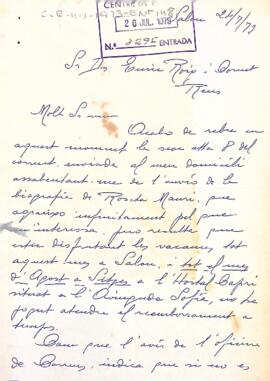 CENTRE DE
C.E-4-1-1973-ENT.148
26 JUL. 1973
N.º 2295 ENTRADA
Salou 24/7/73
Sr Dn Enric Roig i Cornet
Reus
Molt Sr meu
Acabo de rebre en
aquest moment la seva atta 8 del
corrent, enviada al meu domicili
assabentant-me de l'envio de la
biografia de Roseta Mauri, que
agraeixo infinitament pel que
interessa. Pero resulta que
estic disfrutant les vacances tot
aquest mes a Salou, i tot el mes
d'Agost a Sitges a l'Hostal Capri
situat a l'Avinguda Sofia, no he
pogut atendre el reemborsament a
temps.
Com que l'avis de l'oficina
de Correus, indica que si no es